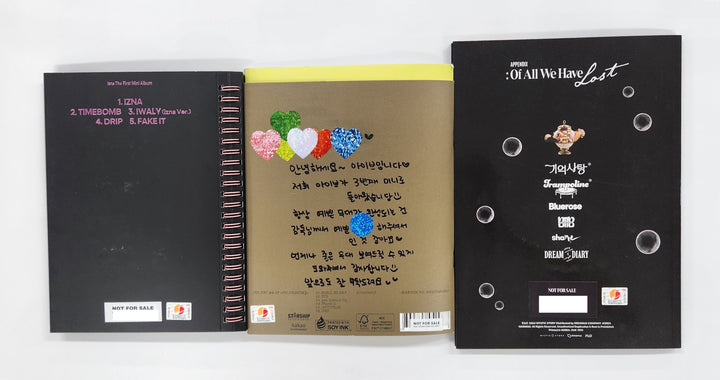 Izna The First Mini Album
1. IZNA
2. TIMEBOMB 3. IWALY (Izna Ver.)
4. DRIP 5. FAKE IT
NOT FOR SALE
안녕하세요~ 아이브입니다♡
저희 아이브가 3번째 미니로
돌아왔습니다
항상 예쁜 무대가 완성되는 건
감독님께서 예쁘 해주셔서
인 것 같아요
언제나 좋은 무대 보여드릴 수 있게
도와주셔서 감사합니다
앞으로도 잘 부탁드려요
STARSHIP
kakao
PRINTED WITH
SOY INK
FSC
NOT FOR SALE
APPENDIX
: Of All We Have Lost
기억사탕
Trampoline
Bluerose
share
DREAM DIARY
NOT FOR SALE